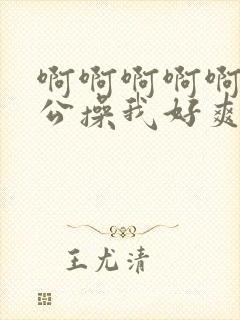 啊啊啊啊啊
公操我好爽
王尤清